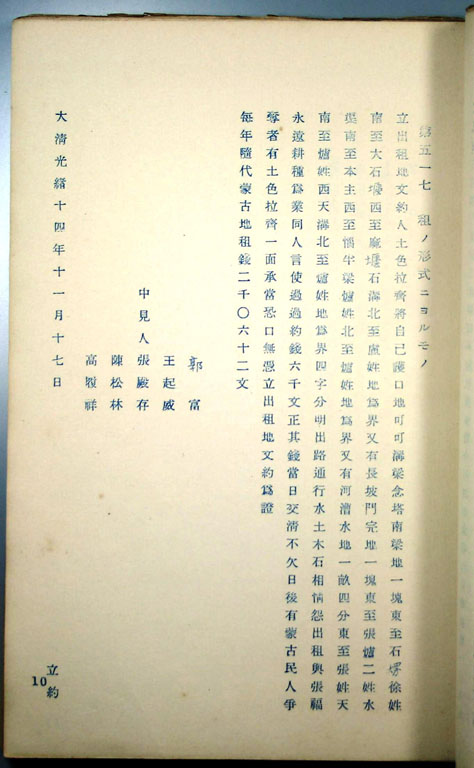 第五一七　租ノ形式ニヨルモノ
立出租地文約人土色拉齊將自己護口地可可溝梁念塔南梁地一塊東至石塄徐姓
南至大石壕西至龐堰石溝北至盧姓地爲界又有長坡門完地一塊東至張爐二姓水
渠南至本主西至惱牛梁爐姓北至爐姓地爲界又有河漕水地一畝四分東至張姓天
南至爐姓西天溝北至爐姓地爲界四字分明出路通行水土木石相情怨出租與張福
永遠耕種爲業同人言使過過約錢六千文正其錢當日交清不欠日後有蒙古民人爭
奪者有土色拉齊一面承當恐口無憑立出租地文約爲證
每年隨代蒙古地租錢二千〇六十二文
郭富
王起威
中見人張殿存
陳松林
高履祥
大清光緒十四年十一月十七日
立約
10